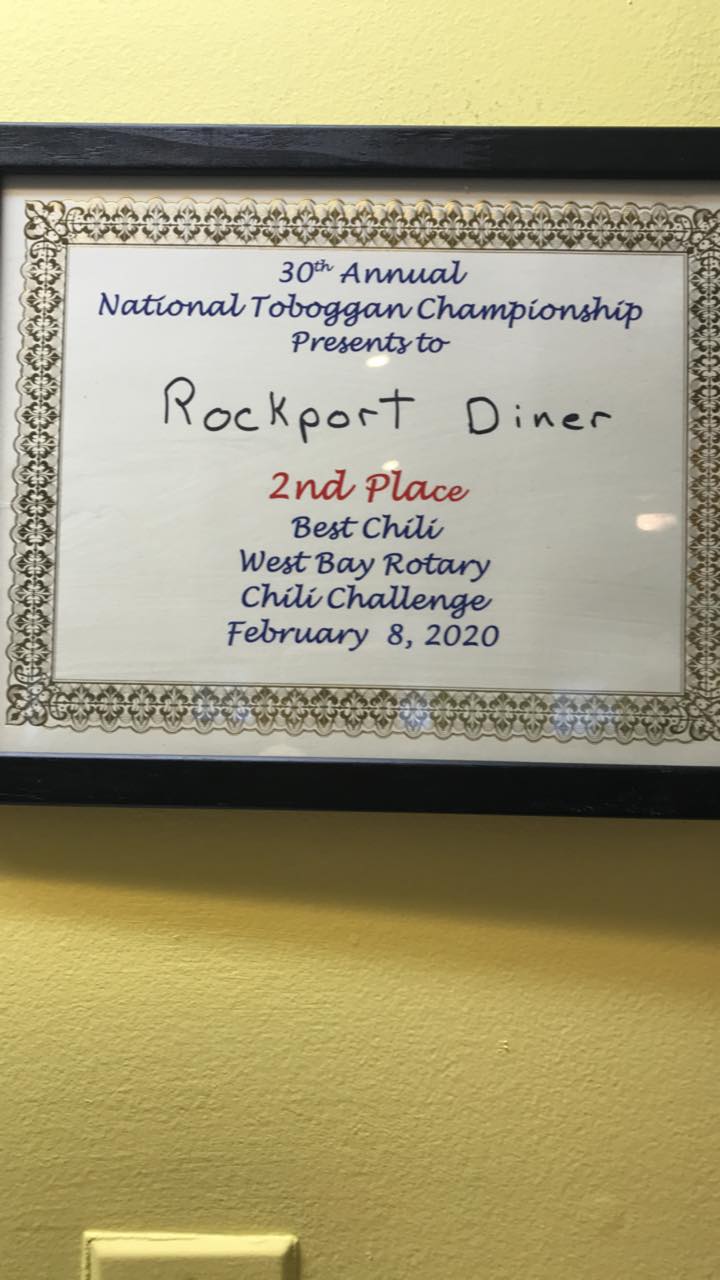 30th Annual
National Toboggan Championship
Presents to
Rockport Diner
2nd Place
Best Chili
West Bay Rotary
Chili Challenge
February 8, 2020